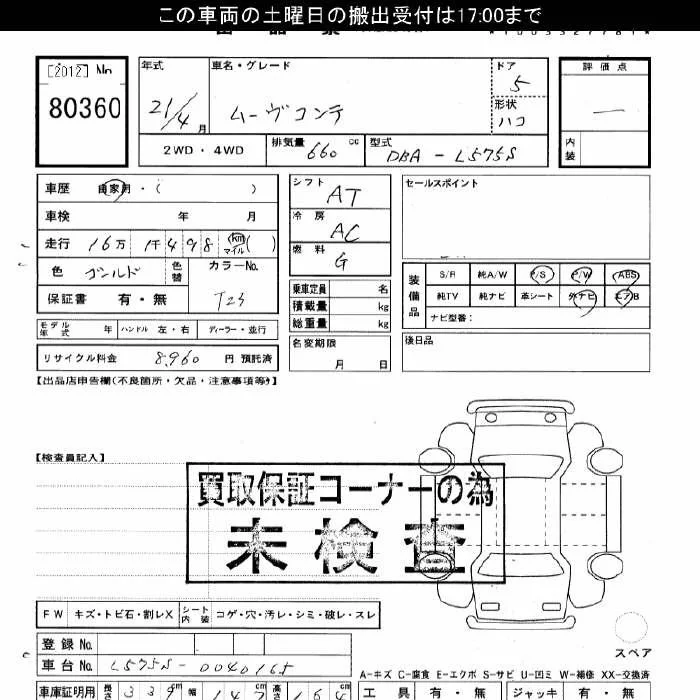 この車両の土曜日の搬出受付は17:00まで
[2012] No
80360
年式
21/4 月
車名・グレード
ムーヴコンテ
ドア
5
形状
ハコ
評価点
—
内装
2WD・4WD
排気量 660 cc
型式 DBA-L575S
車歴 自家用・( )
車検 年 月
走行 16万 1千498 km マイル ( )
色 ゴールド 色替
カラーNo.
T23
保証書 有・無
モデル年式 年 ハンドル 左・右 ディーラー・並行
リサイクル料金 8,960 円 預託済
シフト
AT
冷房
AC
燃料
G
乗車定員 名
積載量 kg
総重量 kg
名変期限
月 日
セールスポイント
装備品
S/R 純A/W P/S P/W ABS
純TV 純ナビ 革シート 外ナビ エアB
ナビ型番:
後日品
【出品店申告欄(不良箇所・欠品・注意事項等)】
【検査員記入】
買取保証コーナーの為
未検査
FW キズ・トビ石・割レX シート内装 コゲ・穴・汚レ・シミ・破レ・スレ
登録No.
車台No. L575S-0040165
スペア
A-キズ C-腐食 E-エクボ S-サビ U-凹ミ W-補修 XX-交換済
車庫証明用 長さ 339 cm 幅 147 高さ 164 cm
工具 有・無 ジャッキ 有・無